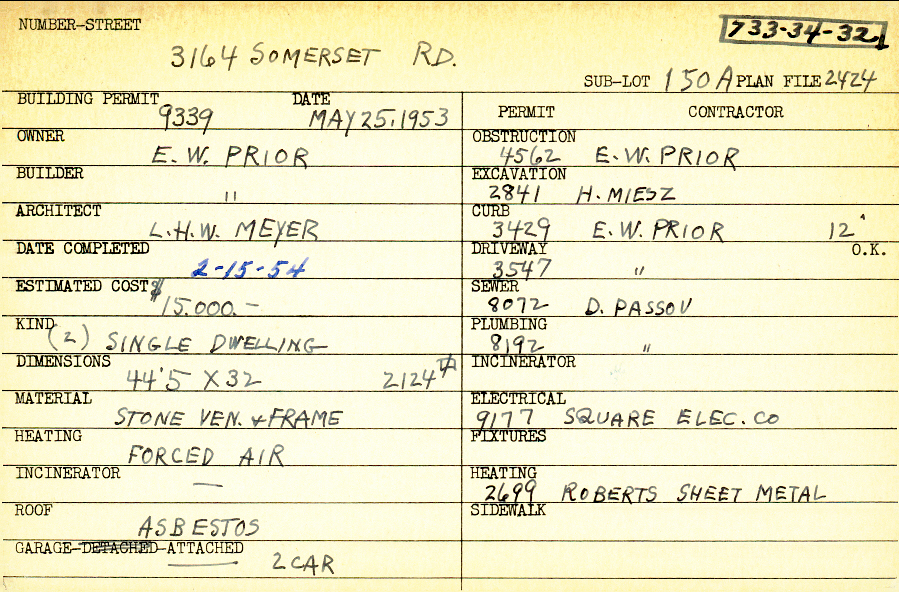 NUMBER-STREET
733-34-32
3164 SOMERSET RD.
SUB-LOT 150 A PLAN FILE 2424
BUILDING PERMIT 9339 DATE MAY 25, 1953
OWNER E. W. PRIOR
BUILDER "
ARCHITECT L. H. W. MEYER
DATE COMPLETED 2-15-54
ESTIMATED COST $15.000.-
KIND (2) SINGLE DWELLING
DIMENSIONS 44'5 X 32 2124
MATERIAL STONE VEN. & FRAME
HEATING FORCED AIR
INCINERATOR —
ROOF ASBESTOS
GARAGE-DETACHED-ATTACHED 2 CAR
PERMIT CONTRACTOR
OBSTRUCTION 4562 E. W. PRIOR
EXCAVATION 2841 H. MIESZ
CURB 3429 E. W. PRIOR 12'
DRIVEWAY 3547 " O.K.
SEWER 8072 D. PASSOV
PLUMBING 8192 "
INCINERATOR
ELECTRICAL 9177 SQUARE ELEC. CO
FIXTURES
HEATING 2699 ROBERTS SHEET METAL
SIDEWALK